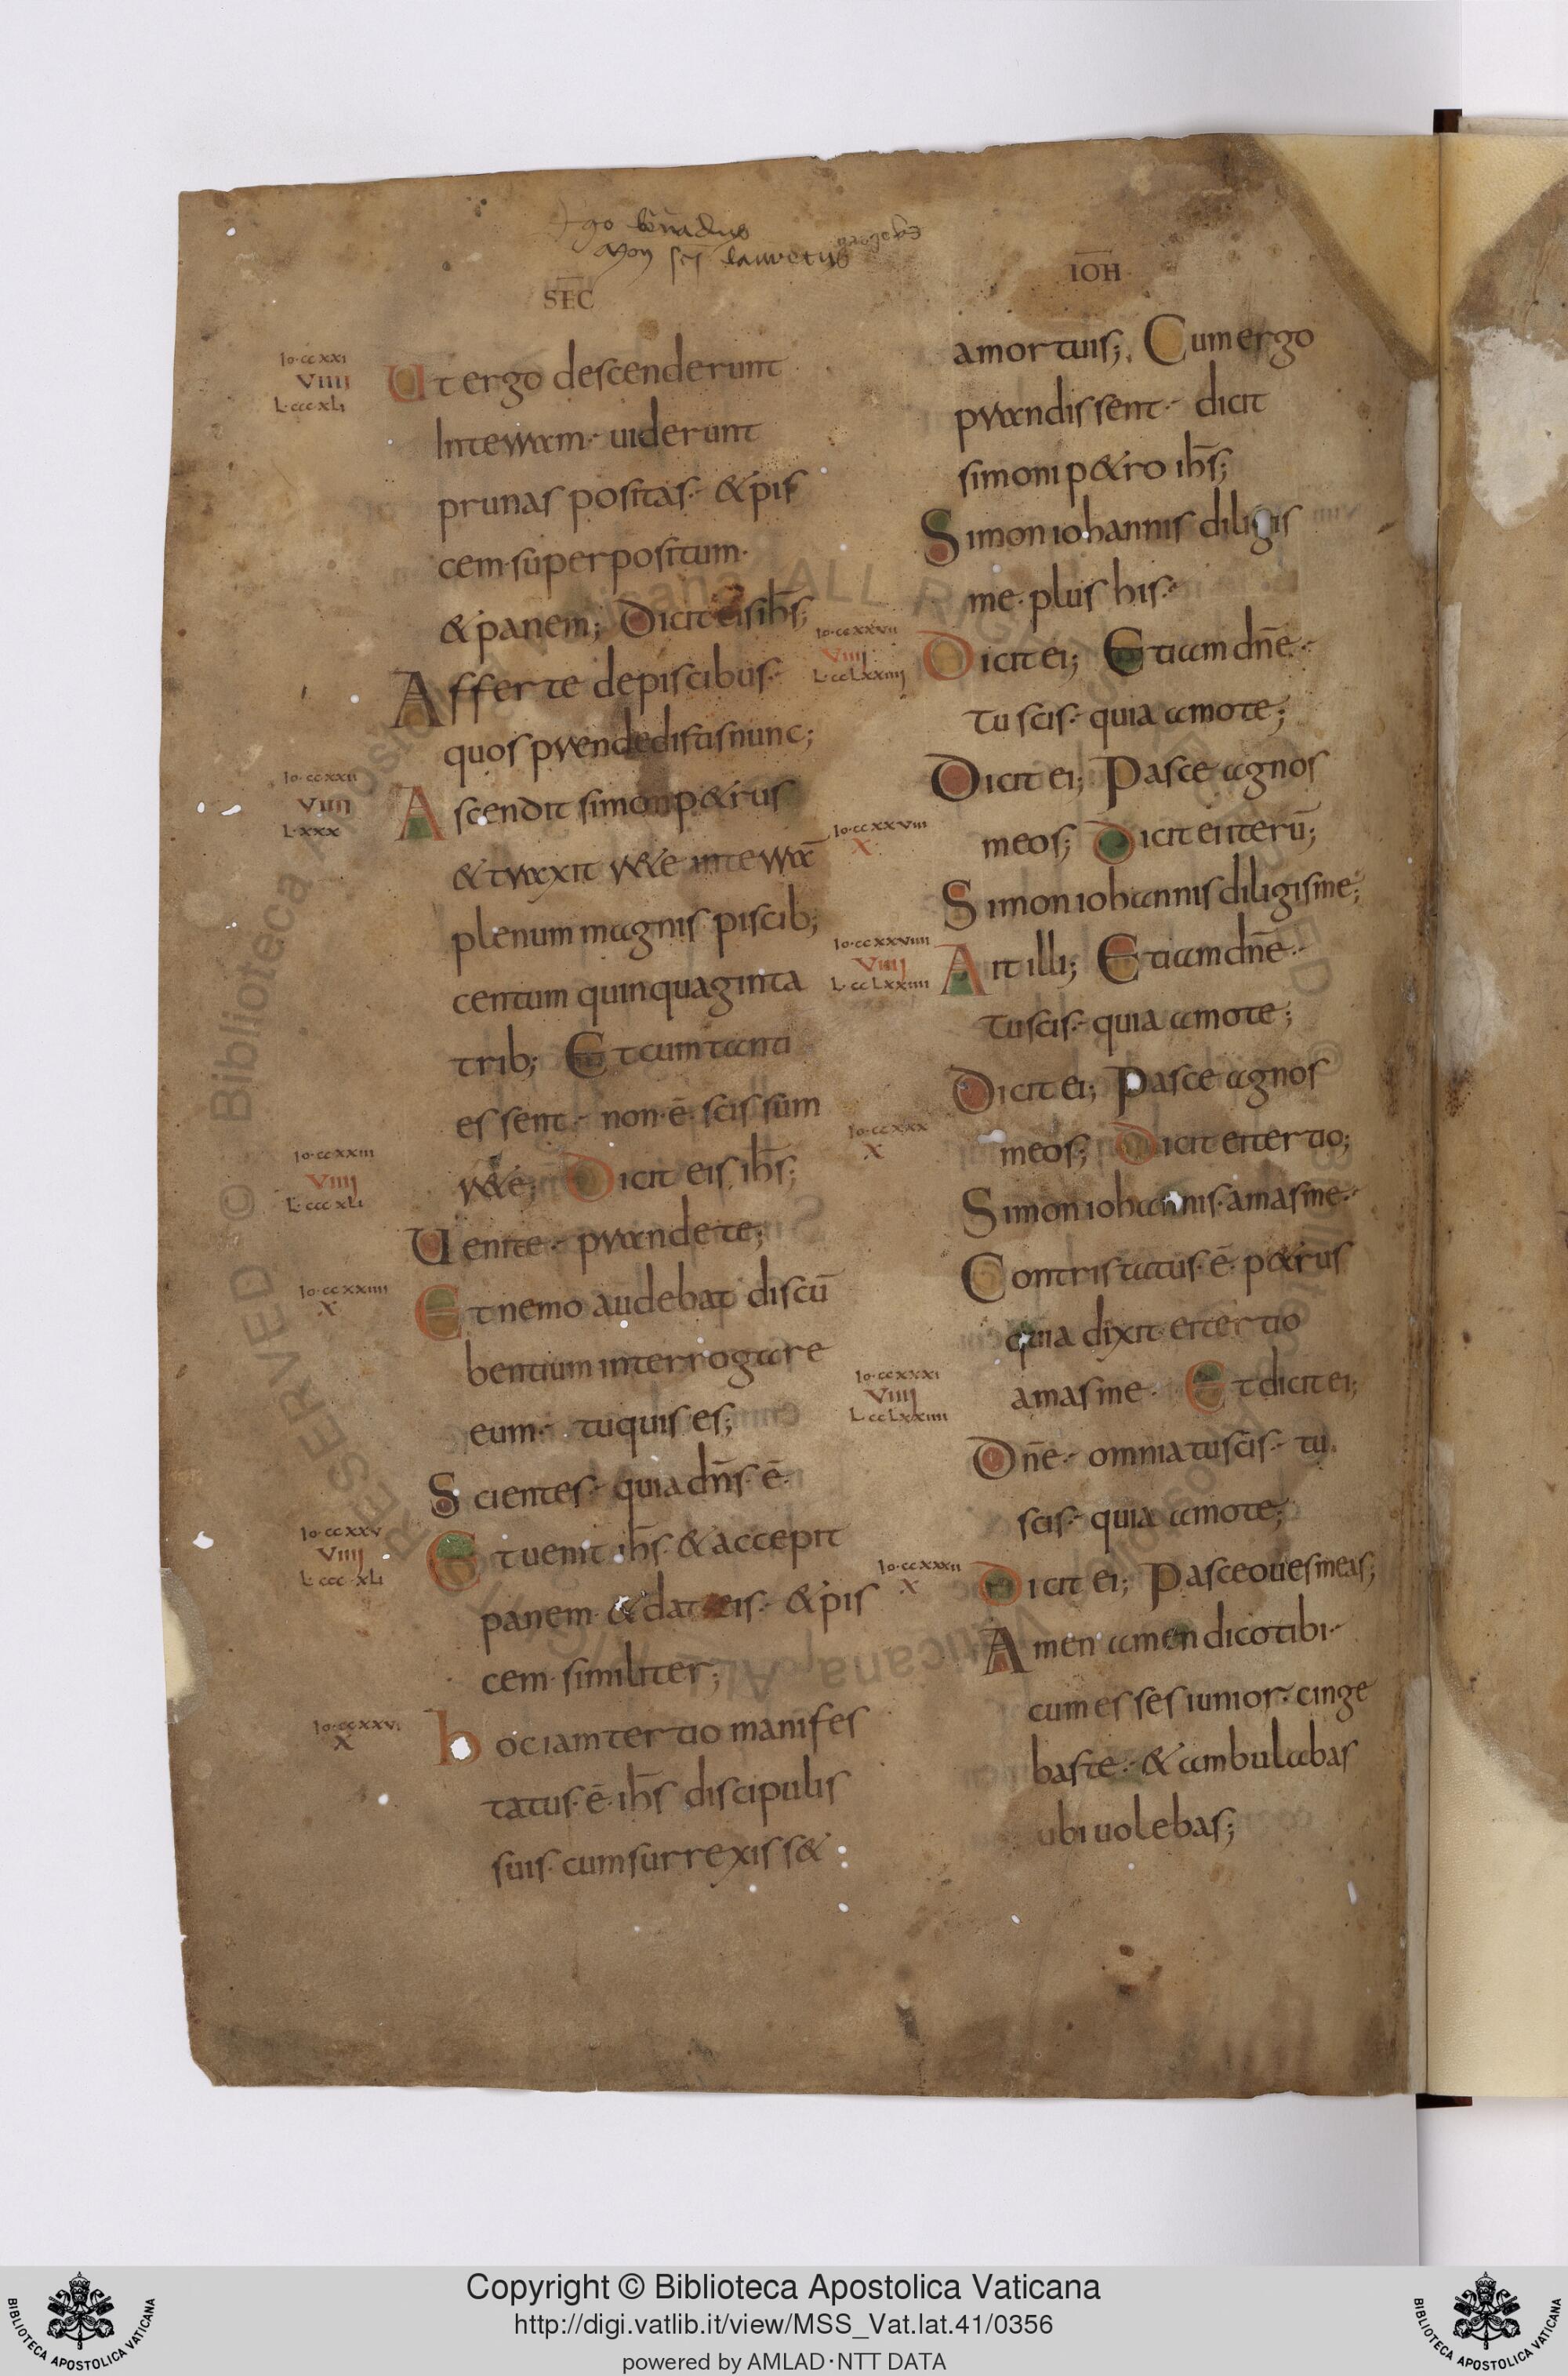 SEC
IOH
Io·ccxxi
VIIII
L·cccxli
Ut ergo descenderunt
Interram· uiderunt
prunas positas· & pis
cem·superpositum·
& panem; Dicit eis ihs̄;
Afferte depiscibus·
quos prendedistis nunc;
Io·ccxxii
VIIII
L·xxx
Ascendit simonp&rus
& traxit r&e interrā
plenum magnis piscib;
centum quinquaginta
trib; Et cum tanti
essent· non·ē· scissum
Io·ccxxiii
VIIII
L·cccxli
r&e; Dicit eis ihs̄;
Uenite· prandete;
Io·ccxxiiii
X
Et nemo audebat discū
bentium interrogare
eum· tuquis es;
Scientes· quia dn̄s·ē·
Io·ccxxv
VIIII
L·ccc·xli
Et uenit ihs̄· & accepit
panem· & dat eis· & pis
cem·similiter;
Io·ccxxvi
X
hoc iamtertio manifes
tatus·ē·ihs̄ discipulis
suis·cumsurrexiss&
amortuis; Cum ergo
prandissent· dicit
simonip&ro ihs̄;
Simon iohannis diligis
me·plus his·
Io·ccxxvii
VIIII
L·cclxxiiii
Dicit ei; Etiam dn̄e·
tu scis· quia amote;
Dicit ei; Pasce agnos
Io·ccxxviii
X
meos; Dicit eiiterū;
Simon iohannisdiligisme;
Io·ccxxviiii
VIIII
L·cclxxiiii
Ait illi; Etiam dn̄e·
tuscis· quia amote;
Dicit ei; Pasce agnos
Io·ccxxx
X
meos; Dicit eitertio;
Simon iohannis·amasme·
Contristatus·ē·p&rus
quia dixit eitertio
Io·ccxxxi
VIIII
L·cclxxiiii
amasme· Et dicit ei;
Dn̄e· omniatuscis· tu
scis· quia amote;
Io·ccxxxii
X
Dicit ei; Pasceouesmeas;
Amen amen dicotibi·
cum esses iunior·cinge
baste· & ambulabas
ubiuolebas;
Copyright © Biblioteca Apostolica Vaticana
http://digi.vatlib.it/view/MSS_Vat.lat.41/0356
powered by AMLAD·NTT DATA
BIBLIOTECA APOSTOLICA VATICANA
BIBLIOTECA APOSTOLICA VATICANA